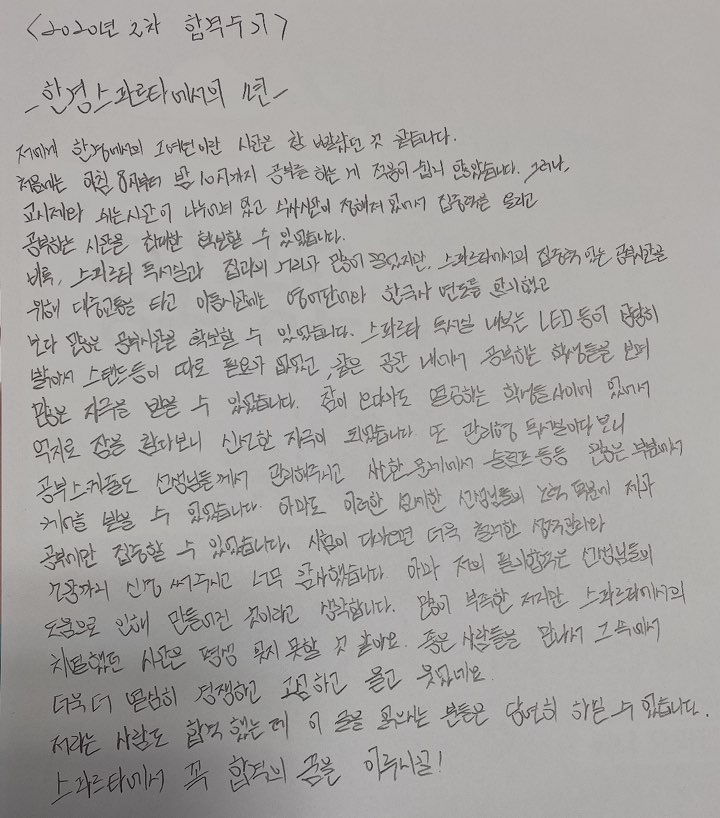 <2020년 2차 합격수기>
_한경스파르타에서의 1년_
저에게 한경에서의 1여년이란 시간은 참 빨랐던 것 같습니다.
처음에는 아침 8시부터 밤 10시까지 공부를 하는 게 적응이 쉽지 않았습니다. 그러나,
교시제와 쉬는시간이 나누어져 있고 식사시간이 정해져 있어서 집중력을 올리고
공부하는 시간을 최대한 확보할 수 있었습니다.
비록, 스파르타 독서실과 집과의 거리가 많이 멀었지만, 스파르타에서의 집중력 있는 공부시간을
위해 대중교통을 타고 이동시간에는 영어단어와 한국사 연도를 암기했고
보다 많은 공부시간을 확보할 수 있었습니다. 스파르타 독서실 내부는 LED등이 굉장히
밝아서 스탠드등이 따로 필요가 없었고, 같은 공간 내에서 공부하는 학생들을 보며
많은 자극을 받을 수 있었습니다. 잠이 오다가도 열공하는 학생들사이에 있어서
억지로 잠을 참다보니 신선한 자극이 되었습니다. 또 관리형 독서실이다보니
공부스케줄도 선생님들께서 관리해주시고 사소한 문제에서 슬럼프등등 많은 부분에서
케어를 받을 수 있었습니다. 아마도 이러한 섬세한 선생님들의 노력 덕분에 제가
공부에만 집중할 수 있었습니다. 시험이 다가오면 더욱 철저한 성적관리와
건강까지 신경 써주시고 너무 감사했습니다. 아마 저의 필기합격은 선생님들의
도움으로 인해 만들어진 것이라고 생각합니다. 많이 부족한 저지만 스파르타에서의
치열했던 시간은 평생 잊지 못할 것 같아요. 좋은 사람들을 만나서 그 속에서
더욱 더 열심히 경쟁하고 고민하고 울고 웃었네요.
저라는 사람도 합격 했는데 이 글을 읽으시는 분들은 당연히 하실 수 있습니다.
스파르타에서 꼭 합격의 꿈을 이루시길!